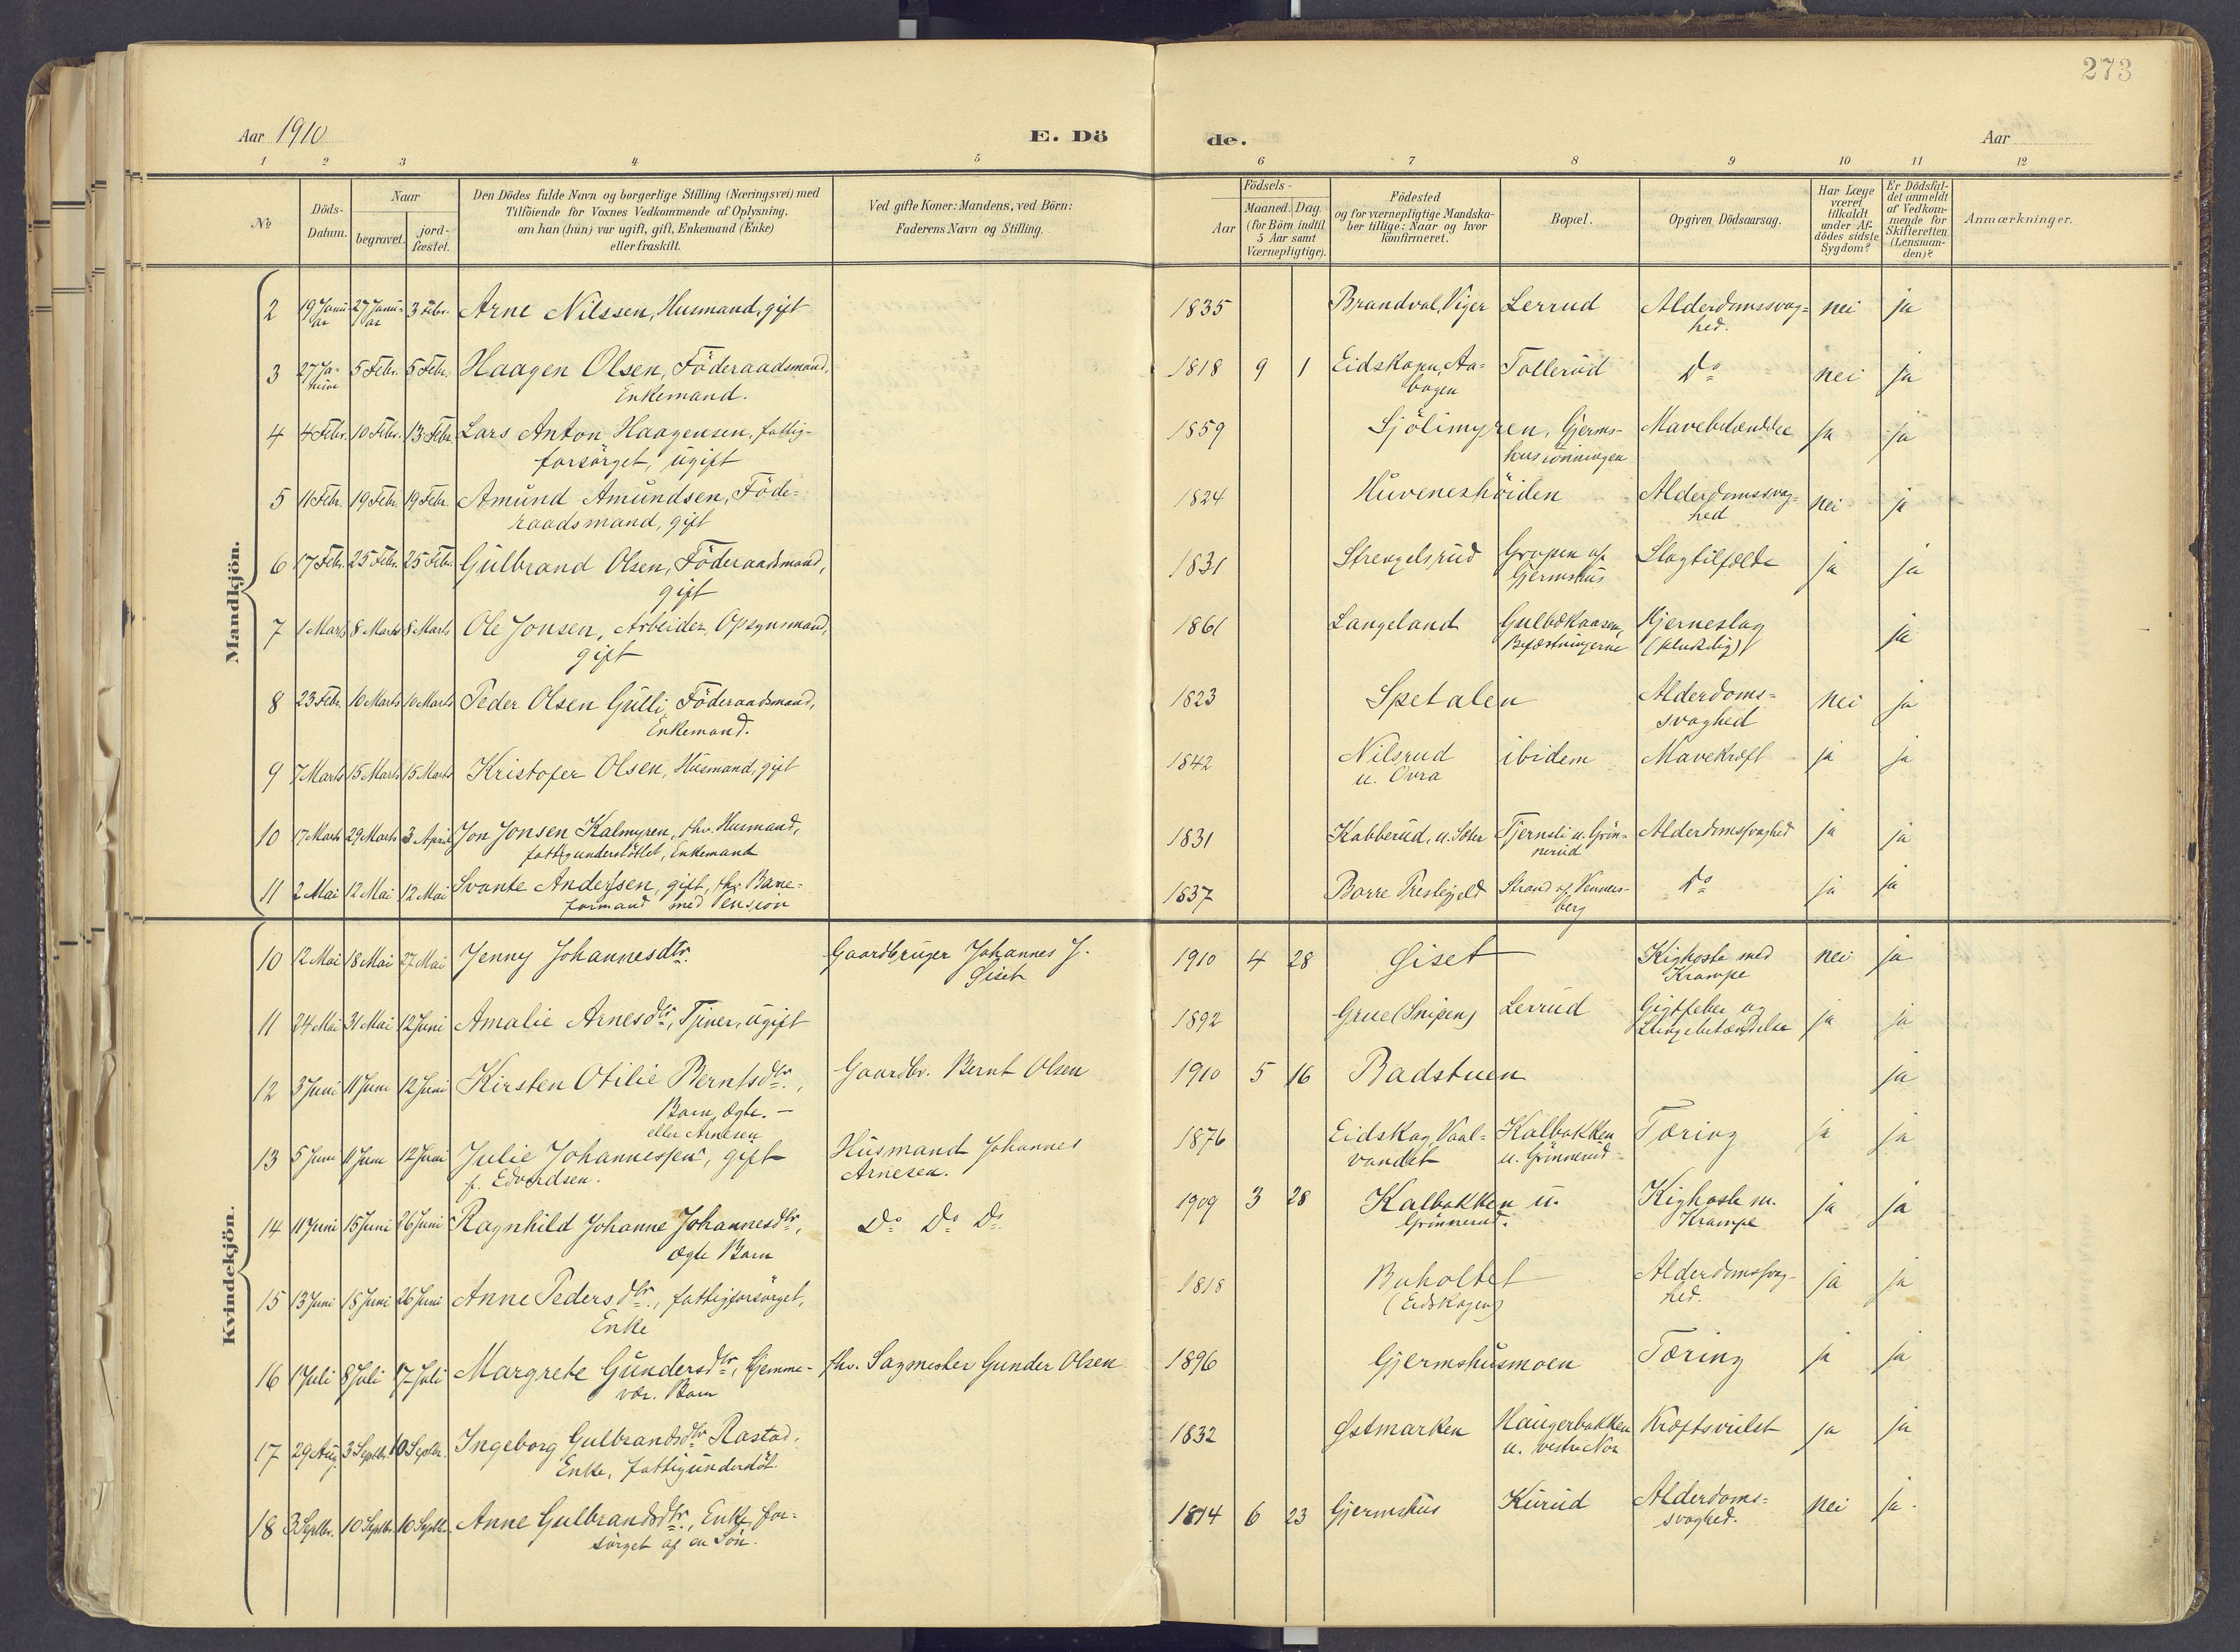 273
Aar 1910
E. Dö
de.
Aar
1 2 3 4 5 6 7 8 9 10 11 12
No
Döds-
Datum.
Naar
begravet.
jord-
fæstet.
Den Dödes fulde Navn og borgerlige Stilling (Næringsvei) med
Tilföiende for Voxnes Vedkommende af Oplysning,
om han (hun) var ugift, gift, Enkemand (Enke)
eller fraskilt.
Ved gifte Koner: Mandens, ved Börn:
Faderens Navn og Stilling.
Födsels-
Aar
Maaned. Dag.
(for Börn indtil
5 Aar samt
Værnepligtige).
Födested
og for værnepligtige Mandska-
ber tillige: Naar og hvor
konfirmeret.
Bopæl.
Opgiven Dödsaarsag.
Har Læge
været
tilkaldt
under Af-
dödes sidste
Sygdom?
Er Dödsfal-
det anmeldt
af Vedkom-
mende for
Skifteretten
(Lensman-
den)?
Anmærkninger.
Mandkjön.
2 19 Janu- 27 Janu- 3 Febr. Arne Nilssen, Husmand, gift 1835 Brandval, Viger Lerrud Alderdomssvag- nei ja
ar ar hed.
3 27 Ja- 5 Febr. 5 Febr. Haagen Olsen, Föderaadsmand, 1818 9 1 Eidskogn, Aa- Tollerud Do nei ja
nuar Enkemand. bogen
4 4 Febr. 10 Febr. 13 Febr. Lars Anton Haagensen, fattig- 1859 Sjölimyren, Gjerms- ja ja
forsörget, ugift
5 11 Febr. 19 Febr. 19 Febr. Amund Amundsen, Föde- 1824 Huveneshöiden Alderdomssvag- nei ja
raadsmand, gift hed
6 17 Febr. 25 Febr. 25 Febr. Gulbrand Olsen, Föderaadsmand, 1831 Strengelsrud Gropen af Slagtilfælde ja ja
gift Gjermshus
7 1 Marts 8 Marts 8 Marts Ole Jonsen, Arbeider, Opsynsmand, 1861 Langeland Gulbækaasen, Hjerneslag ja
gift Befæstningerne (pludselig)
8 23 Febr. 10 Marts 10 Marts Peder Olsen Gulli, Föderaadsmand, 1823 Spetalen Alderdoms- nei ja
Enkemand. svaghed
9 7 Marts 15 Marts 15 Marts Kristofer Olsen, Husmand, gift 1842 Nilsrud ibidem Mavekræft ja ja
u. Ovra
10 17 Marts 29 Marts 3 April Jon Jonsen Kalmyren, fhv. Husmand, 1831 Kabberud, u. Sæter Tjernsli u. Grön- Alderdomssvaghed ja ja
fattigunderstöttet, Enkemand nerud
11 2 Mai 12 Mai 12 Mai Svante Anderssen, gift, fhv. Bane- 1837 Borre Prestegjeld Strand af Venners- Do ja ja
formand med Pension berg
Kvindekjön.
10 12 Mai 18 Mai 27 Mai Jenny Johannesdtr. Gaardbruger Johannes J. 1910 4 28 Giset Kighoste med nei ja
Giset Krampe
11 24 Mai 31 Mai 12 Juni Amalie Arnesdtr., Tjener, ugift 1892 Grue (Snipen) Lerrud Gigtfeber og ja ja
12 3 Juni 11 Juni 12 Juni Kirsten Otilie Berntsdtr., Gaardbr. Bernt Olsen 1910 5 16 Badstuen ja
Barn, ægte. —
eller Arnesen
13 5 Juni 11 Juni 12 Juni Julie Johannessen, gift Husmand Johannes 1876 Eidskog, Vaal- Kalbakken Tæring ja ja
f. Edvardsen. Arnesen. vandet u. Grönnerud
14 11 Juni 15 Juni 26 Juni Ragnhild Johanne Johannesdtr., Do Do Do 1909 3 28 Kalbakken u. Kighoste m. ja ja
ægte Barn Grönnerud. Krampe
15 13 Juni 18 Juni 26 Juni Anne Pedersdtr., fattigforsörget, 1818 Buholtet Alderdomssvag- ja ja
Enke (Eidskogen) hed.
16 1 Juli 8 Juli 17 Juli Margrete Gundersdtr., Hjemme- fhv. Sagmester Gunder Olsen 1896 Gjermshusmoen Tæring ja ja
vær. Barn
17 29 Aug. 3 Septbr. 10 Septbr. Ingeborg Gulbrandsdtr. Rastad, 1832 Østmarken Haugerbakken Kræftsvulst ja ja
Enke, fattigunderstöt. u. vestre Nor
18 3 Septbr. 10 Septbr. 10 Septbr. Anne Gulbrandsdtr., Enke, for- 1814 6 23 Gjermshus Kurud Alderdoms- nei ja.
sörget af en Sön. svaghed.